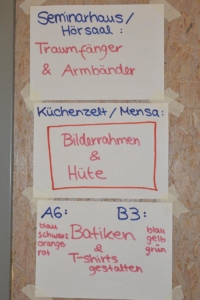 Seminarhaus/
Hörsaal:
Traumfänger
& Armbänder
Küchenzelt/Mensa:
Bilderrahmen
&
Hüte
A6: B3:
blau
schwarz
orange
rot
Batiken
&
T-shirts
gestalten
blau
gelb
grün